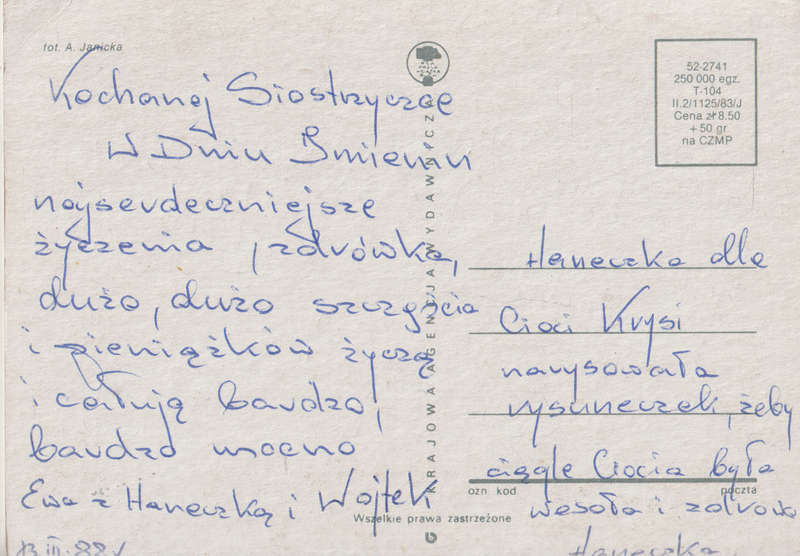 fot. A. Janicka
Kochanej Siostrzyczce
W Dniu Imienin
najserdeczniejsze
życzenia, zdrówka,
dużo, dużo szczęścia
i pieniążków życzą
i całują bardzo,
bardzo mocno
Ewa z Haneczką i Wojtek
13.III.88r
KRAJOWA AGENCJA WYDAWNICZA
52-2741
250 000 egz.
T-104
II.2/1125/83/J
Cena zł 8.50
+ 50 gr
na CZMP
Haneczka dla
Cioci Krysi
narysowała
rysuneczek, żeby
ciągle Ciocia była
wesoła i zdrowa
Haneczka
ozn kod
poczta
Wszelkie prawa zastrzeżone